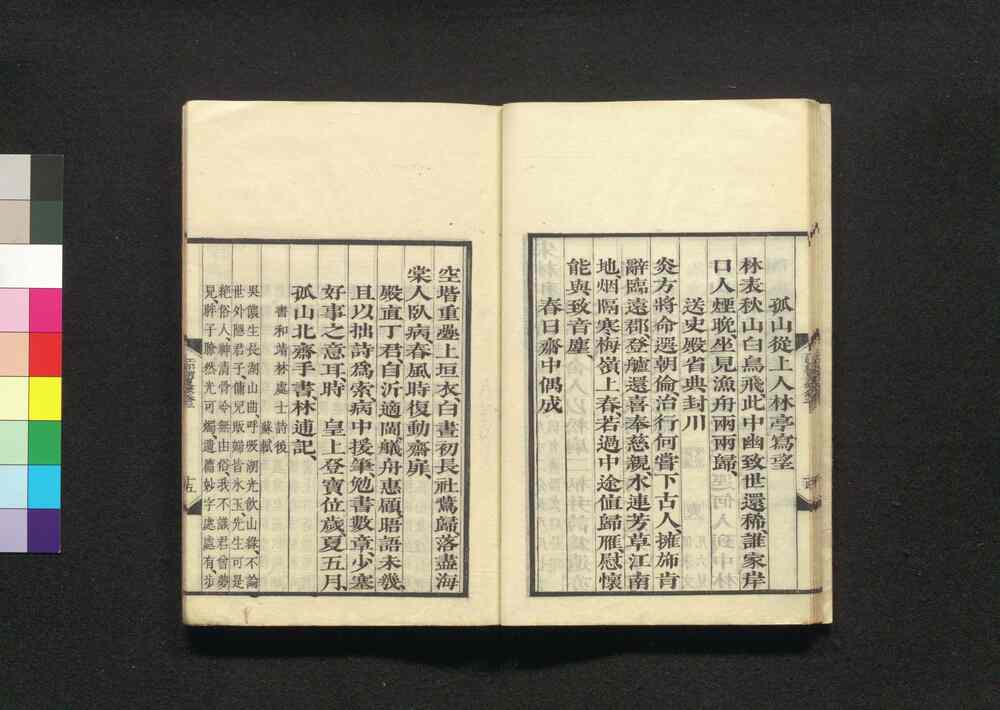 孤山從上人林亭寫望
林表秋山白鳥飛、此中幽致世還稀、誰家岸
口人煙晚坐見漁舟兩兩歸、
送史殿省典封川
炎方將命選朝倫治行何嘗下古人、擁旆肯
辭臨遠郡、登艫還喜奉慈親、水連芳草江南
地、烟隔寒梅嶺上春、若過中途值歸雁、慰懷
能與致音塵、
春日齋中偶成
空堦重疊上垣衣、白晝初長社鷰歸、落盡海
棠人臥病、春風時復動齋扉、
殿直丁君、自沂適閩、艤舟惠顧、晤語未幾、
且以拙詩爲索、病中援筆、勉書數章、少塞
好事之意耳、時 皇上登寶位歲夏五月、
孤山北齋手書、林逋記、
書和靖林處士詩後
蘇軾
吳儂生長湖山曲、呼吸湖光飲山綠、不論
世外隱君子、傭兒販婦皆氷玉、先生可是
絕俗人、神清骨冷無由俗、我不識君曾夢
見、眸子瞭然光可燭、遺篇妙字處處有、步